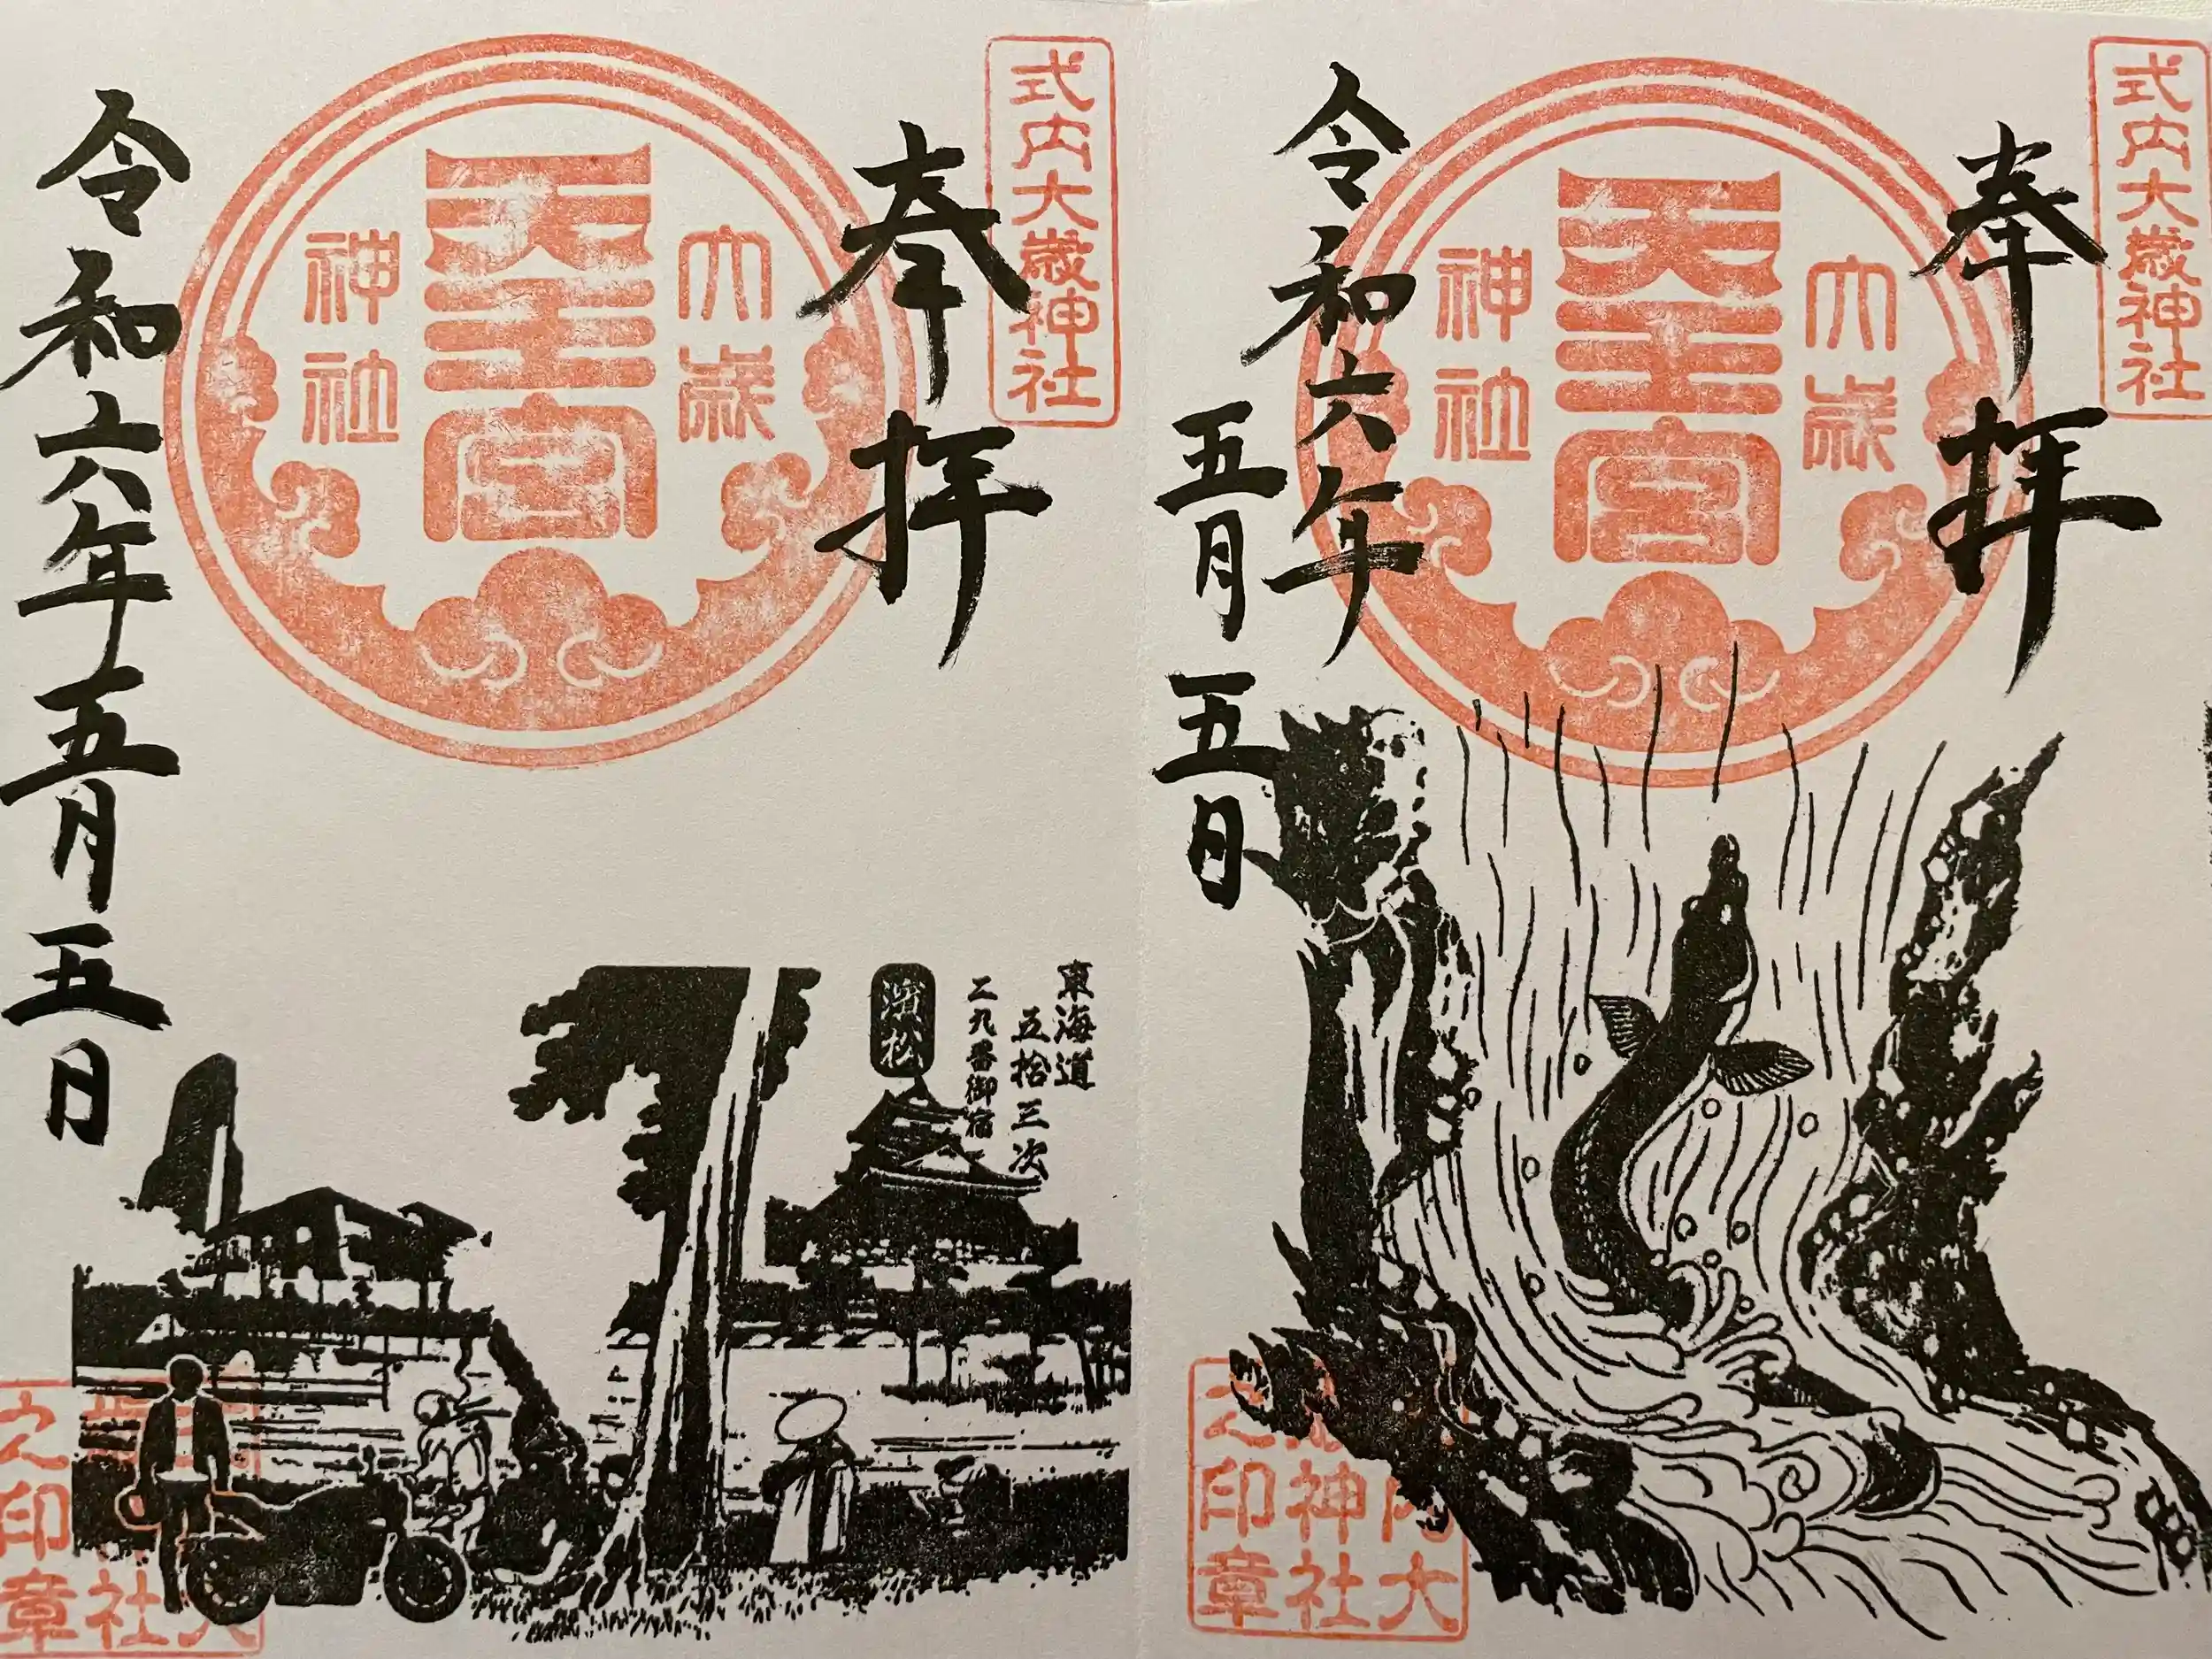 式内大歳神社
奉拝
大歳
天王宮
神社
令和六年
五月五日
内大
神社
之印章
式内大歳神社
奉拝
大歳
天王宮
神社
令和六年五月五日
東海道
五拾三次
二九番御宿
濱松
大
社
之印章